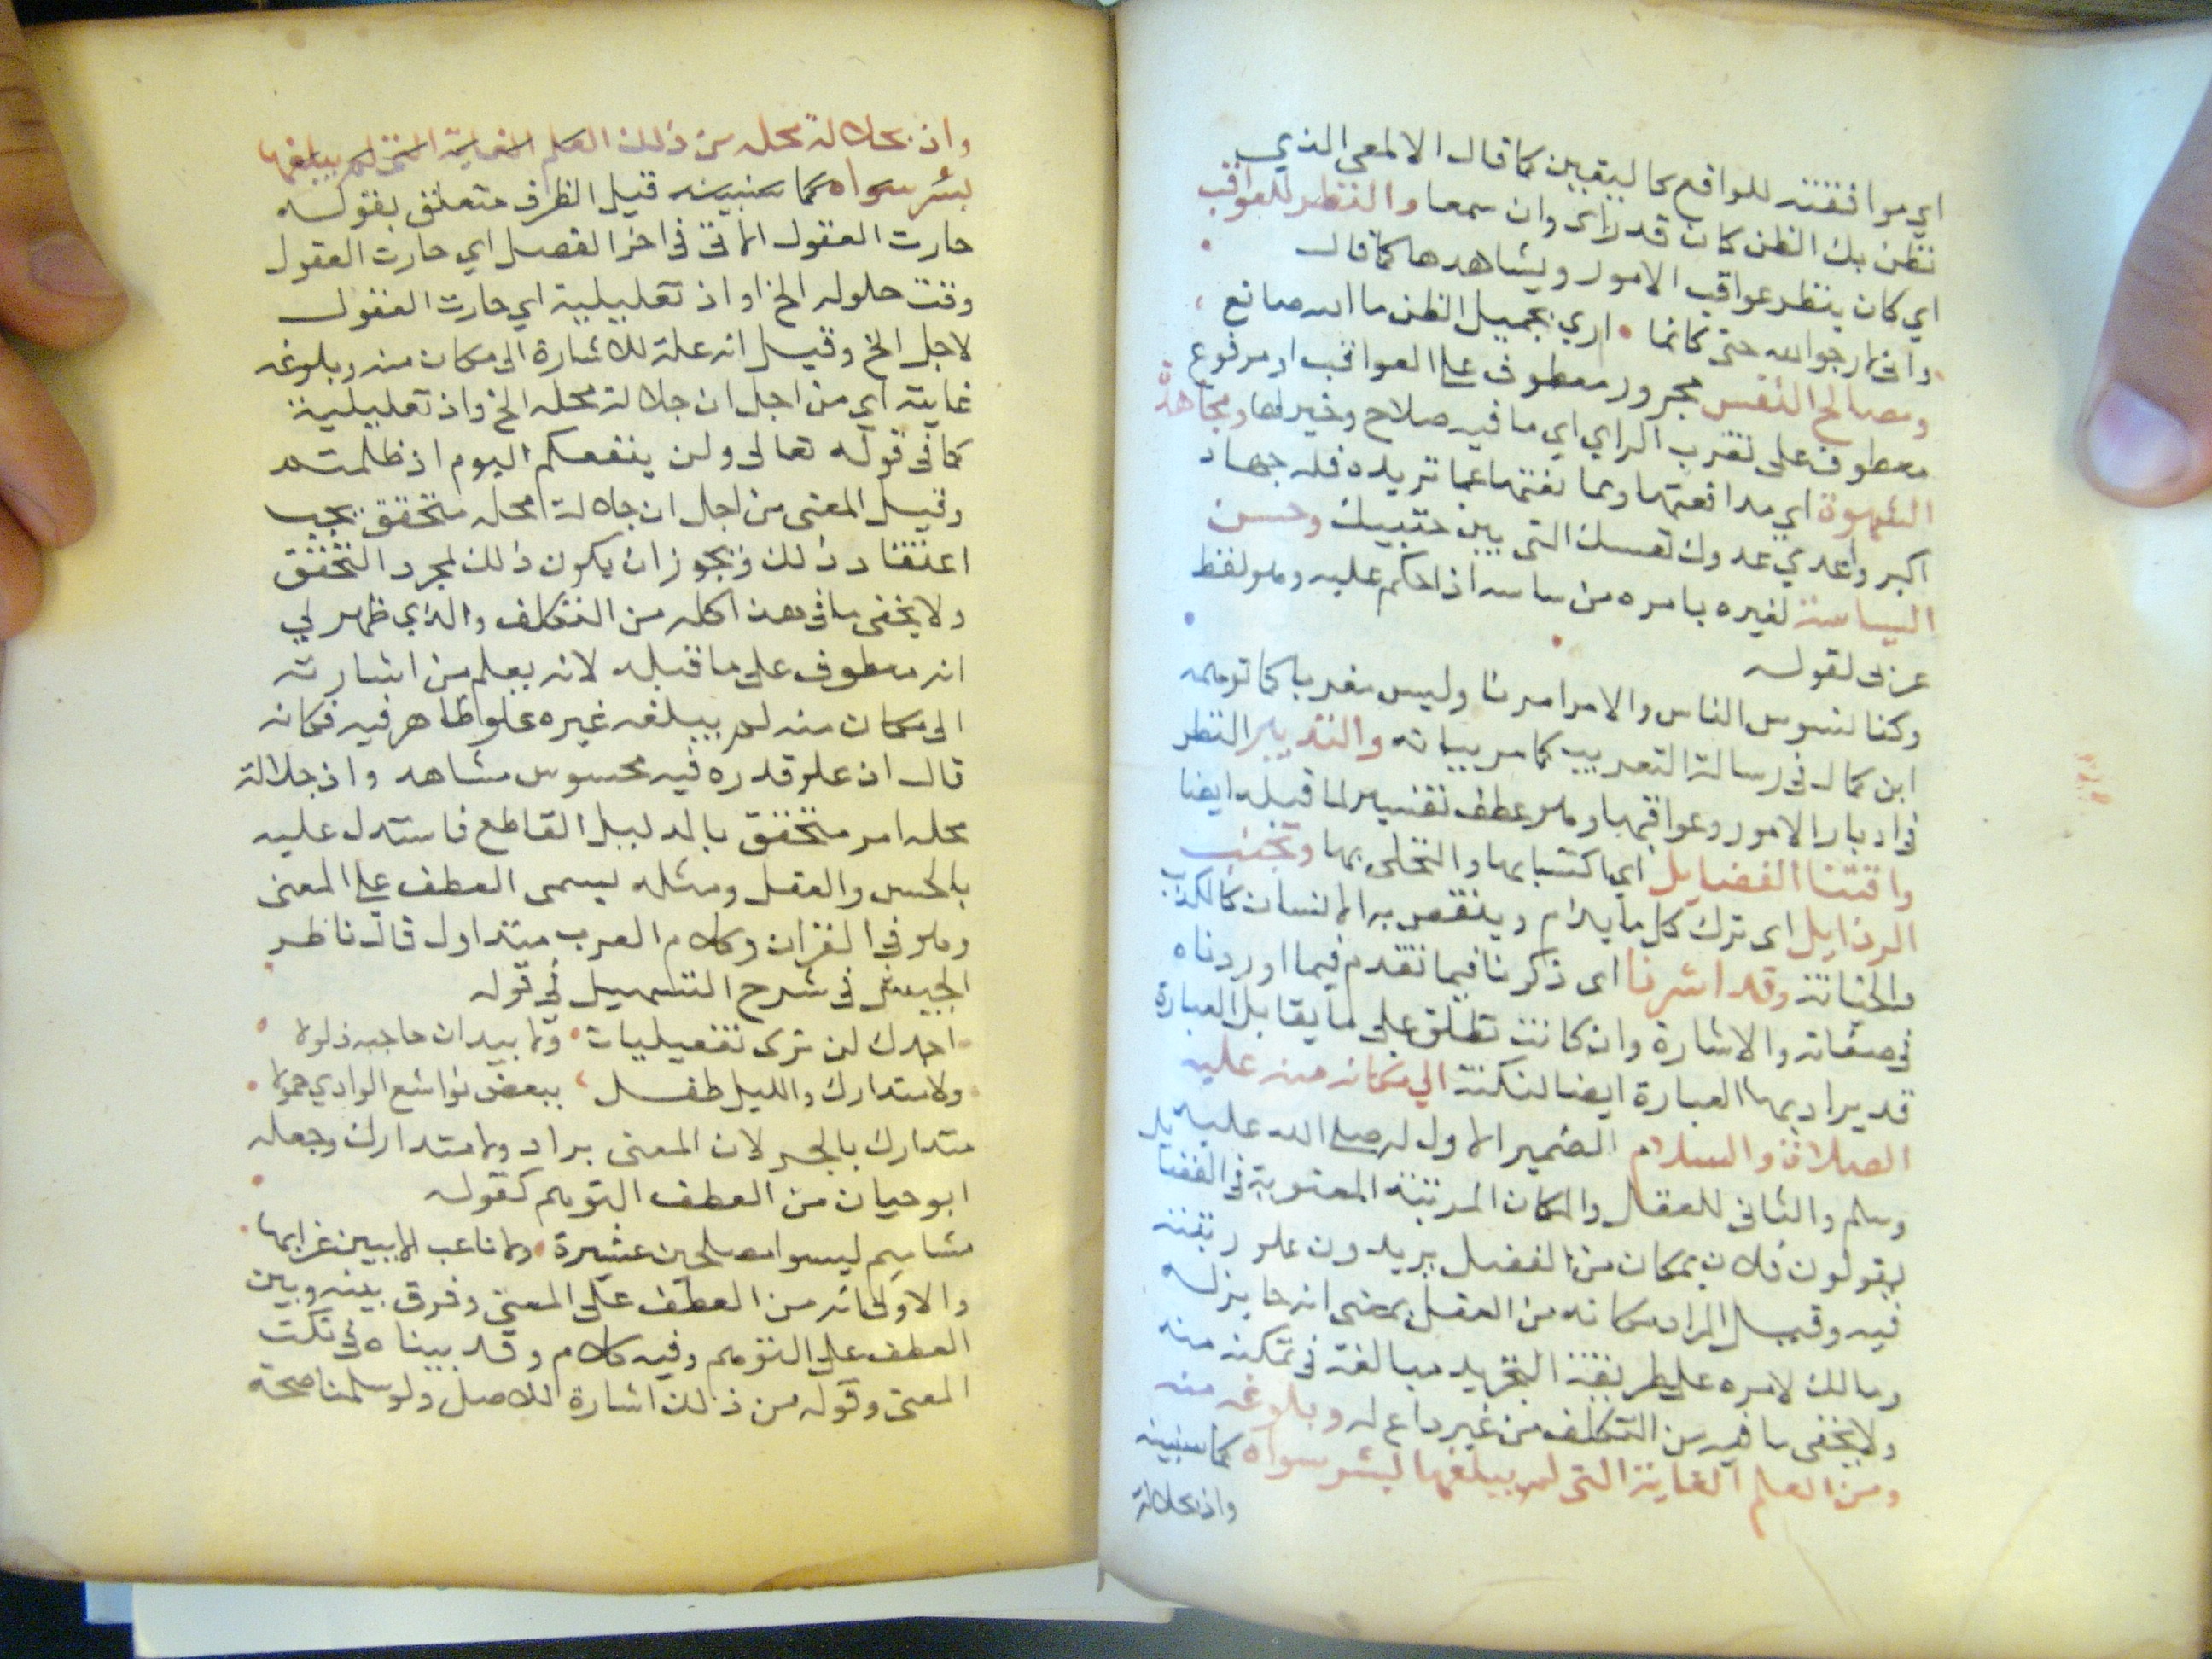 اي موافقته للواقع كاليقين كما قال الالمعي الذي
يظن بك الظن كان قد راى وان سمعا والنظر للعواقب
اي كان ينظر عواقب الامور ويشاهدها كما قال
واني ارجو الله حتى كانما ارى بجميل الظن ما الله صانع
ومصالح النفس مجرور معطوف على العواقب او مرفوع
معطوف على نقرب الراي اي ما فيه صلاح وخير لها ومجاهدة
الشهوة اي مدافعتها ومما نعتها عما تريده فله جهاد
اكبر واعدي عدوك نفسك التي بين جنبيك وحسن
السياسة لغيره بامره من ساسه اذا حكم عليه وهو لفظ
عربي لقوله
وكنا نسوس الناس والامر امرنا وليس معربا كما توهمه
ابن كمال في رسالة التعريب كما مر بيانه والتدبير النظر
في ادبار الامور وعواقبها وهو عطف تفسير لما قبله ايضا
واقتنا الفضايل اي اكتسابها والتحلى بها وتجنب
الرذايل اى ترك كل ما يذم وينقص به الانسان كالكذب
والخيانة وقد اشرنا اى ذكرنا فيما تقدم فيما اوردناه
في صفاته والاشارة وان كانت تطلق على ما يقابل العبارة
قد يراد بها العبارة ايضا لنكتة الي مكانه منه عليه
الصلاة والسلام الضمير الاول له صلى الله عليه
وسلم والثاني للعقل والمكان المرتبة المعنوية في الفضايل
يقولون فلان بمكان من الفضل يريدون علو رتبته
فيه وقيل المراد مكانه من العقل بمعنى انه حايز له
ومالك لامره على طريقة التجريد مبالغة في تمكنه منه
ولا يخفى ما فيه من التكلف من غير داع له وبلوغه منه
ومن العلم الغاية التي لم يبلغها بشر سواه كما سنبينه
واذ جلالة
واذ بجلالة محله من ذلك العلم الغاية التى لم يبلغها
بشر سواه كما سنبينه قيل الظرف متعلق بقوله
حارت العقول الاتي في اخر الفصل اي حارت العقول
وقت حلوله الخ او اذ تعليلية اي حارت العقول
لاجل الخ وقيل انه علة للاشارة الى مكان منه وبلوغه
غايته اي من اجل ان جلالة محله الخ واذ تعليلية
كما في قوله تعالى ولن ينفعكم اليوم اذ ظلمتم
وقيل المعنى من اجل ان جلالة محله متحقق يجب
اعتقاد ذلك ويجوز ان يكون ذلك لمجرد التحقق
ولا يخفى ما في هذا كله من التكلف والذي ظهر لي
انه معطوف على ما قبله لانه يعلم من اشارته
الى مكان منه لم يبلغه غيره علو ظاهر فيه فكانه
قال ان علو قدره فيه محسوس مشاهد واذ جلالة
محله امر متحقق بالدليل القاطع فاستدل عليه
بالحس والعقل ومثله يسمى العطف على المعنى
وهو في القران وكلام العرب متداول قال ناظر
الجيش في شرح التسهيل في قوله
اجدك لن ترى بثعيلبات ولا بيدان ناجية ذمولا
ولا متدارك والليل طفل ببعض نواشع الوادي حمولا
متدارك بالجر لان المعنى براد ولا متدارك وجعله
ابو حيان من العطف التوهم كقوله
مشايم ليسوا مصلحين عشيرة ولا ناعب الا ببين غرابها
والاولى انه من العطف على المعنى وفرق بينه وبين
العطف على التوهم وفيه كلام وقد بيناه في نكت
المعنى وقوله من ذلك اشارة للاصل ولو سلمنا صحة